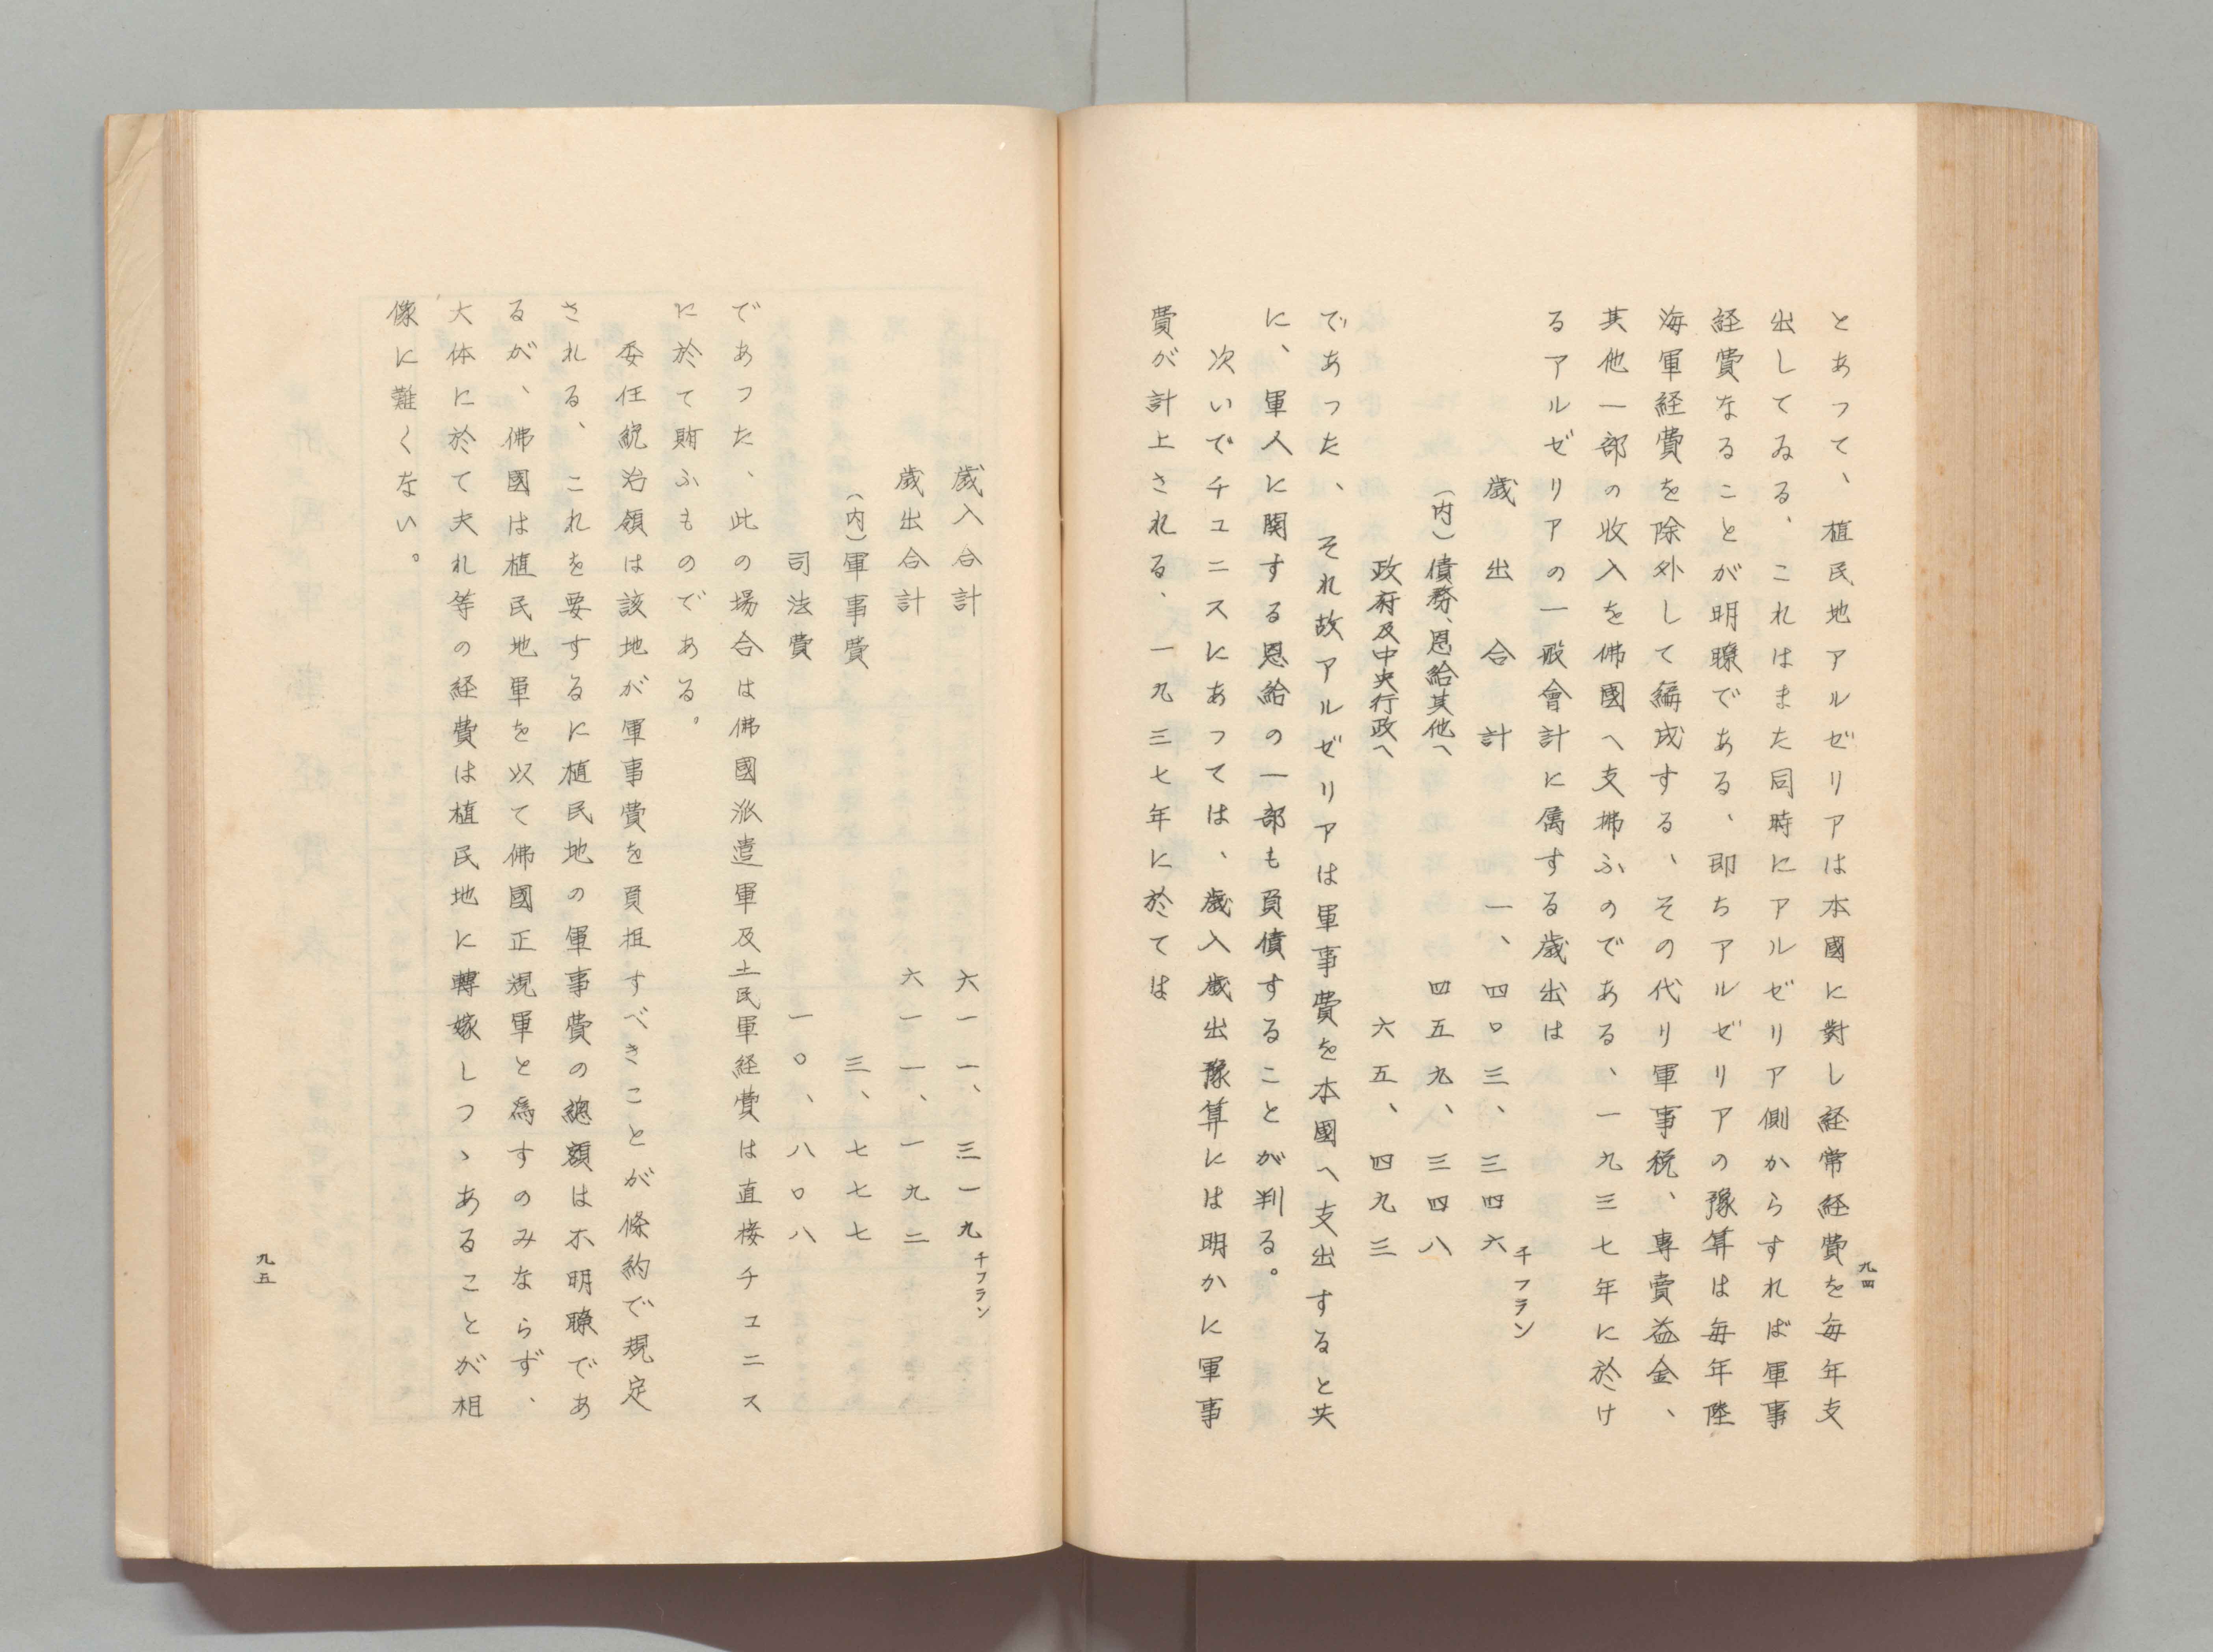 九四
とあつて、植民地アルゼリアは本國に對し経常経費を毎年支
出してゐる、これはまた同時にアルゼリア側からすれば軍事
経費なることが明瞭である、即ちアルゼリアの豫算は毎年陸
海軍経費を除外して編成する、その代り軍事税、專賣益金、
其他一部の收入を佛國へ支拂ふのである、一九三七年に於け
るアルゼリアの一般會計に属する歳出は
千フラン
歳出合計　一、四〇三、三四六
（内）債務、恩給其他へ　四五九、三四八
政府及中央行政へ　六五、四九三
であつた、それ故アルゼリアは軍事費を本國へ支出すると共
に、軍人に関する恩給の一部も負債することが判る。
次いでチュニスにあつては、歳入歳出豫算には明かに軍事
費が計上される、一九三七年に於ては
千フラン
歳入合計　六一一、三一九
歳出合計　六一一、一九二
（内）軍事費　三、七七七
司法費　一〇、八〇八
であつた、此の場合は佛國派遣軍及土民軍経費は直接チュニス
に於て賄ふものである。
委任統治領は該地が軍事費を負担すべきことが條約で規定
される、これを要するに植民地の軍事費の總額は不明瞭であ
るが、佛國は植民地軍を以て佛國正規軍と為すのみならず、
大体に於て夫れ等の経費は植民地に轉嫁しつゝあることが相
像に難くない。
九五